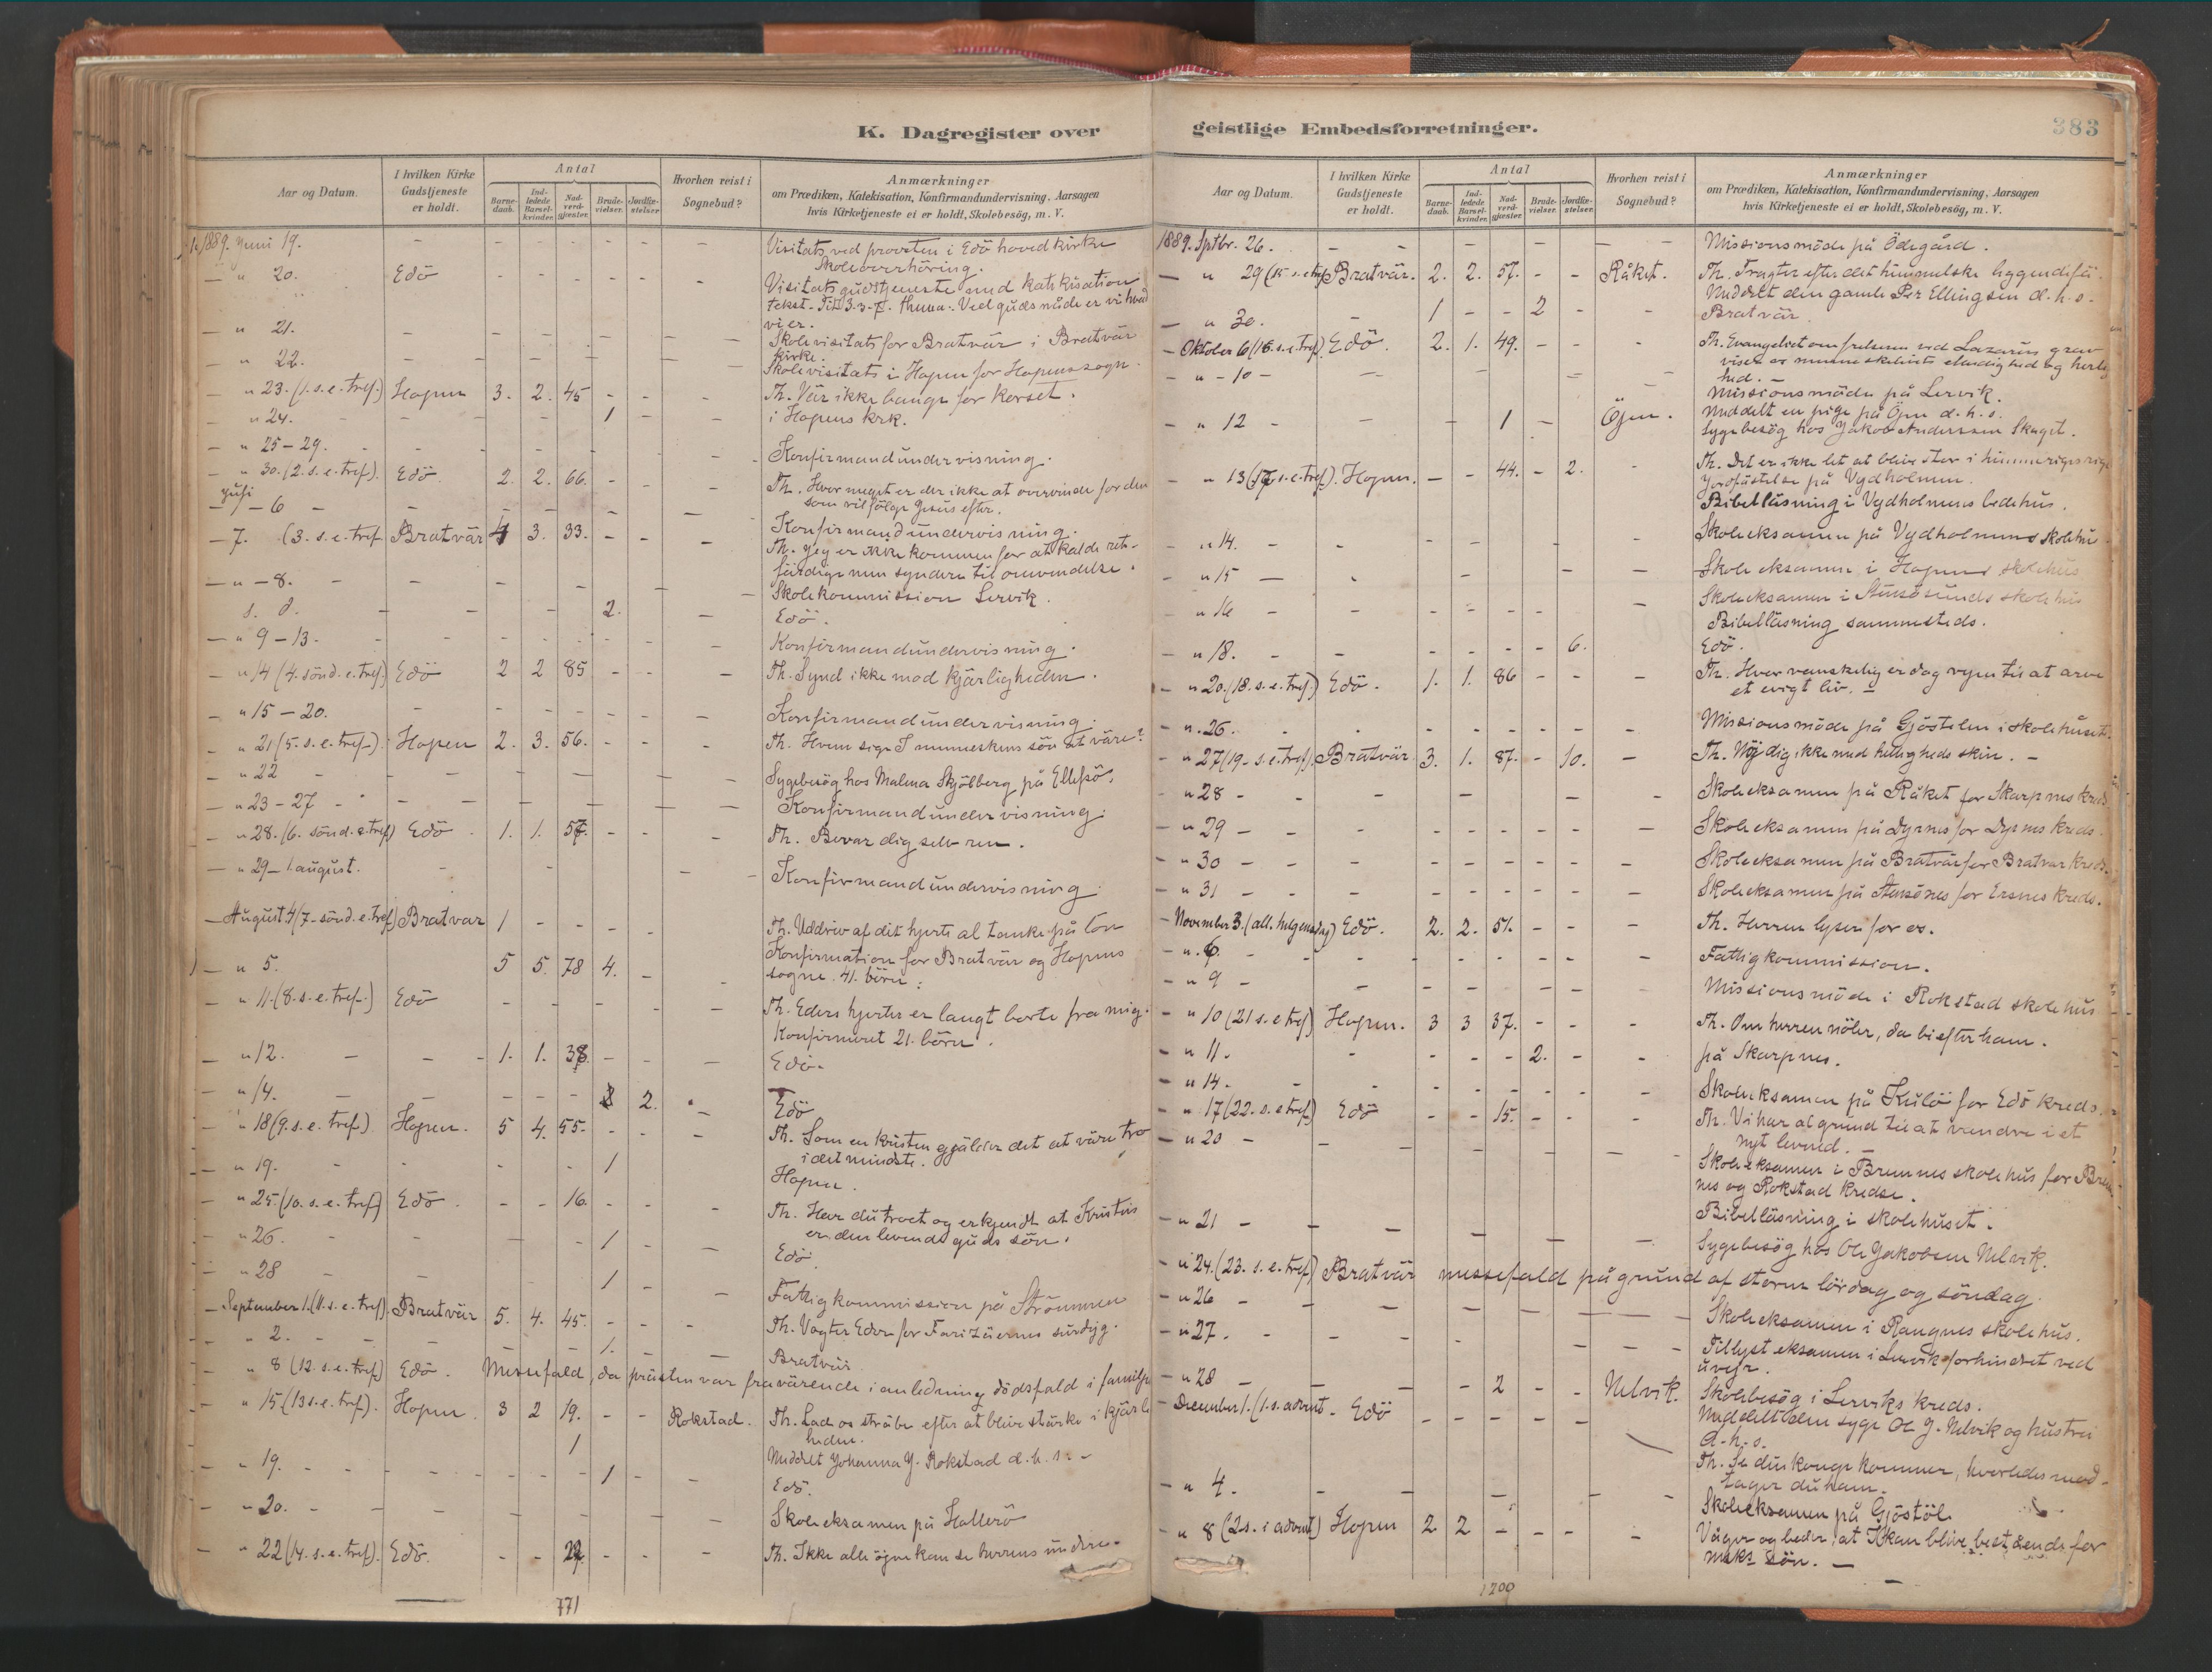 K. Dagregister over
Aar og Datum. I hvilken Kirke Gudstjeneste er holdt. Antal Barnedaab. Indledede Barselkvinder. Nadverdgjester. Brudevielser. Jordfæstelser. Hvorhen reist i Sognebud? Anmærkninger om Prædiken, Katekisation, Konfirmandundervisning, Aarsagen hvis Kirketjeneste ei er holdt, Skolebesög, m. V.
1889. Juni 19. - - - - - - - Visitats ved provsten i Edö hovedkirke
Skoleoverhöring.
" 20. Edö - - - - - - Visitatsgudstjeneste med katekisation
tekst. Tit 3.3-7. thema: Ved guds nåde er vi hvad
vi er.
- " 21. Skolevisitats for Bratvär i Bratvär
kirke.
- " 22. - Skolevisitats i Hopen for Hopens sogn.
" 23. (1. s. e. tref.) Hopen 3. 2. 45 - - - Th. Vär ikke bange for korset.
" 24. - - - - - 1 - i Hopens krk.
- " 25-29. - Konfirmandundervisning.
- " 30. (2. s. e. tref.) Edö 2. 2. 66. - - - Th. Hvor meget er der ikke at overvinde for den
som vil fölge Jesus efter.
Juli
- 6 - Konfirmandundervisning.
- 7. (3. s. e. tref Bratvär 4 3. 33. - - - Th. Jeg er ikke kommen for at kalde ret-
färdige men syndere til omvendelse.
- " - 8. - - - Skolekommission Lervik.
s. d. - - - 2. - Edö.
- " 9-13. - Konfirmandundervisning.
- " 14 (4. sönd. e. tref.) Edö 2 2 85 - - - Th. Synd ikke mod kjärligheden.
- " 15-20. - Konfirmandundervisning.
- " 21 (5. s. e. tref.) Hopen 2. 3. 56. - - - Th. Hvem sige I menneskens sön at väre?
- " 22 - Sygebesög hos Malena Skjölberg på Ellefsö.
- " 23-27 - Konfirmandundervisning.
- " 28. (6. sönd. e. tref) Edö 1. 1. 57. - - - Th. Bevar dig selv ren.
- " 29-1. august. - Konfirmandundervisning.
- August 4 (7. sönd. e. tref) Bratvar 1 - - - - Th. Uddriv af dit hjerte al tanke på lön
- " 5. 5 5. 78 4. - - Konfirmation for Bratvär og Hopens
sogne. 41. börn.
- " 11. (8. s. e. tref.) Edö - - - - - - Th. Eders hjerter er langt borte fra mig.
Konfirmeret 21. börn.
- " 12. - - 1. 1. 38. - - - Edö.
- " 14. - - - - - 2. Edö
- " 18 (9. s. e. tref.) Hopen. 5 4. 55. - - - Th. Som en kristen gjälder det at väre tro
i det mindste.
- " 19. - - - - 1 Hopen.
- " 25. (10. s. e. tref) Edö. - - 16. - - - Th. Har du troet og erkjendt at Kristus
er den levende guds sön.
- " 26. - - 1 - - Edö.
- " 28 - - 1 - - Fattigkommission på Strömmen
- September 1. (11. s. e. tref). Bratvär 5. 4. 45. - - - Th. Vogter Eder for Farisäernes surdejg.
- " 2. - - - - 1. - - Bratvär
" 8 (12. s. e. tref) Edö. Messefald, da prästen var fravärende i anledning dödsfald i familje
" 15. (13 s. e. tref). Hopen 3 2 19. - - Rokstad. Th. Lad os sträbe efter at blive stärke i kjärlig
heden.
1 Meddelt Johanna J. Rokstad d. h. s. -
- " 19. - - - - - 1 - - Edö.
- " 20. - - - - - Skoleeksamen på Hallerö
- " 22 (14. s. e. tref). Edö. - - 27. - - - Th. Ikke alle öine kan se herrens undere.
771
geistlige Embedsforretninger. 383
Aar og Datum. I hvilken Kirke Gudstjeneste er holdt. Antal Barnedaab. Indledede Barselkvinder. Nadverdgjester. Brudevielser. Jordfæstelser. Hvorhen reist i Sognebud? Anmærkninger om Prædiken, Katekisation, Konfirmandundervisning, Aarsagen hvis Kirketjeneste ei er holdt, Skolebesög, m. V.
1889. Sptbr. 26. - - - - - - - Missionsmöde på Ödegård.
- " 29 (15. s. e. tref) Bratvär. 2. 2. 57. - - Råket. Th. Tragter efter det himmelske liggendefä.
Meddelt den gamle Per Ellingsen d. h. s.
- " 30. - 1 - - 2 - - Bratvär.
- Oktober 6 (16. s. e. tref). Edö. 2. 1. 49. - - - Th. Evangeliet om frelseren ved Lazarus grav
viser os menneskelivets elendighed og herlig
hed. -
- " - 10 - - - Missionsmöde på Lervik.
- " 12 - - - 1 - Öjen. Meddelt en pige på Öjen d. h. s.
Sygebesög hos Jakob Anderssen Skaget.
- " 13 (17. s. e. tref). Hopen. - - 44. - 2. - Th. Det er ikke let at blive stor i himmerigesrige
Jordfästelse på Vejdholmen.
Bibelläsning i Vejdholmens bedehus.
- " 14. - - Skoleeksamen på Vejdholmens skolehus
- " 15 - - - Skoleeksamen i Hopens skolehus
- " 16 - - - Skoleeksamen i Stensösunds skolehus
Bibelläsning sammesteds.
- " 18. - - - - - - 6. Edö.
- " 20. (18. s. e. tref.) Edö. 1. 1. 86 - - - Th. Hvor vanskelig er dog vejen til at arve
et evigt liv. -
- " 26. - Missionsmöde på Gjöstelen i skolehuset.
- " 27 (19. s. e. tref). Bratvär. 3. 1. 87. - 10. - Th. Nöj dig ikke med helligheds skin. -
- " 28 - - - Skoleeksamen på Råket for Skarpnes kreds
- " 29 - - - Skoleeksamen på Dyrnes for Dyrnes kreds.
- " 30 - - - Skoleeksamen på Bratvär for Bratvar kreds.
- " 31 - - - Skoleeksamen på Stensönes for Ersnes kreds.
- November 3. (all. helgensdag) Edö. 2. 2. 51. - - - Th. Herren lyser for os.
- " 6. - - - Fattigkommission.
- " 9 - - - Missionsmöde i Rokstad skolehus
- " 10 (21 s. e tref) Hopen. 3 3 37. - - - Th. Om herren nöler, da bi efter ham.
- " 11. - - - - 2. - - på Skarpnes.
- " 14. - - - Skoleeksamen på Kulö for Edö kreds.
- " 17 (22. s. e tref) Edö - - 15. - - - Th. Vi har al grund til at vandre i et
nyt levned. -
- " 20 - - - Skoleeksamen i Bremnes skolehus for Brem
nes og Rokstad kredse.
Bibelläsning i skolehuset.
- " 21 - - - Sygebesög hos Ole Jakobsen Nelvik.
- " 24. (23. s. e. tref) Bratvär messefald på grund af storm lördag og söndag.
- " 26 - - - Skoleeksamen i Rangnes skolehus.
- " 27. - - - Tillyst eksamen i Lervik forhindret ved
uvejr.
- " 28 - - - 2 - - Nelvik. Skolebesög i Lerviks kreds.
Meddelt den syge Ole J. Nelvik og hustru
d. h. s.
- December 1. (1. s. advent - Edö - - - - - Th. Se din konge kommer, hvorledes mod-
tager du ham.
- " 4. - - - Skoleeksamen på Gjöstöl
- " 8 (2 s. i advent) Hopen 2 2 - - - - Våger og beder, at I kan blive bestående for
meks sön. -
1200